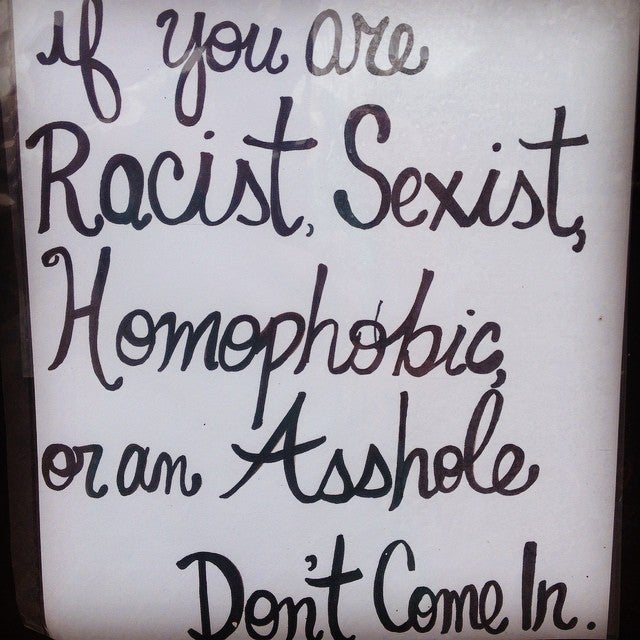 if you are
Racist, Sexist,
Homophobic,
or an Asshole
Don't Come In.